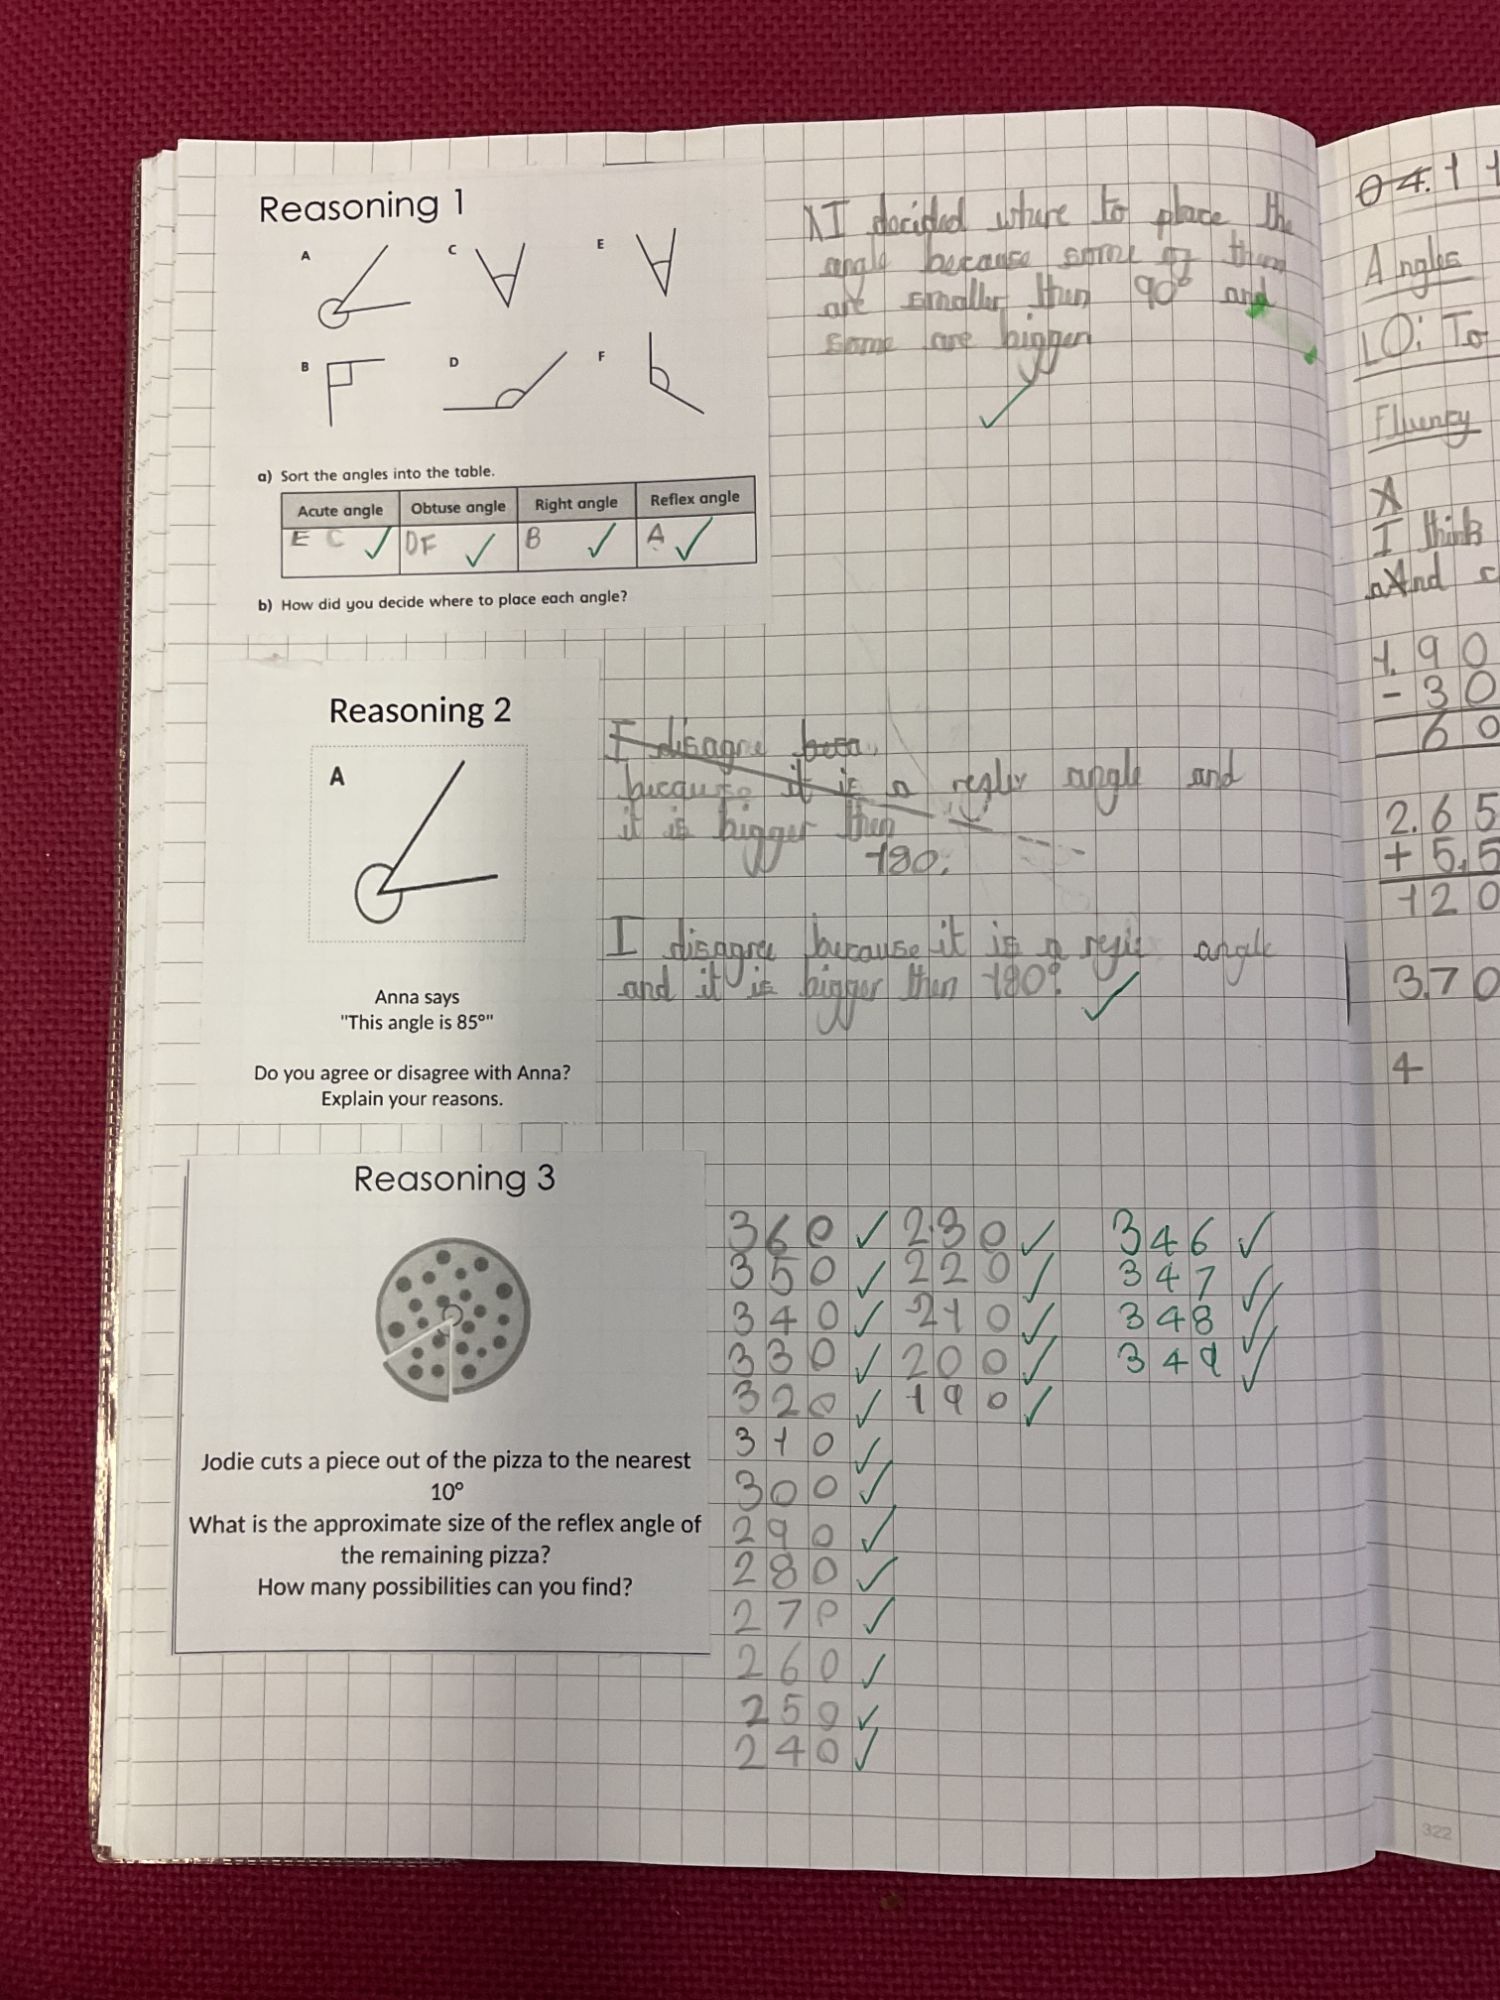 Reasoning 1
A
C
E
B
D
F
a) Sort the angles into the table.
Acute angle Obtuse angle Right angle Reflex angle
E C DF B A
b) How did you decide where to place each angle?
I decided where to place the
angle because some of them
are smaller then 90° and
some are bigger
Reasoning 2
A
Anna says
"This angle is 85°"
Do you agree or disagree with Anna?
Explain your reasons.
I disagre beca
because it is a reflex angle and
it is bigger then
180.
I disagree because it is a angle
and it is bigger then 180°.
Reasoning 3
Jodie cuts a piece out of the pizza to the nearest
10°
What is the approximate size of the reflex angle of
the remaining pizza?
How many possibilities can you find?
360 230 346
350 220 347
340 210 348
330 200 349
320 190
310
300
290
280
270
260
250
240
04.11
Angles
LO: To
Fluency
I think
And
1. 90
- 30
60
2. 65
+ 5,5
120
3.70
4
322